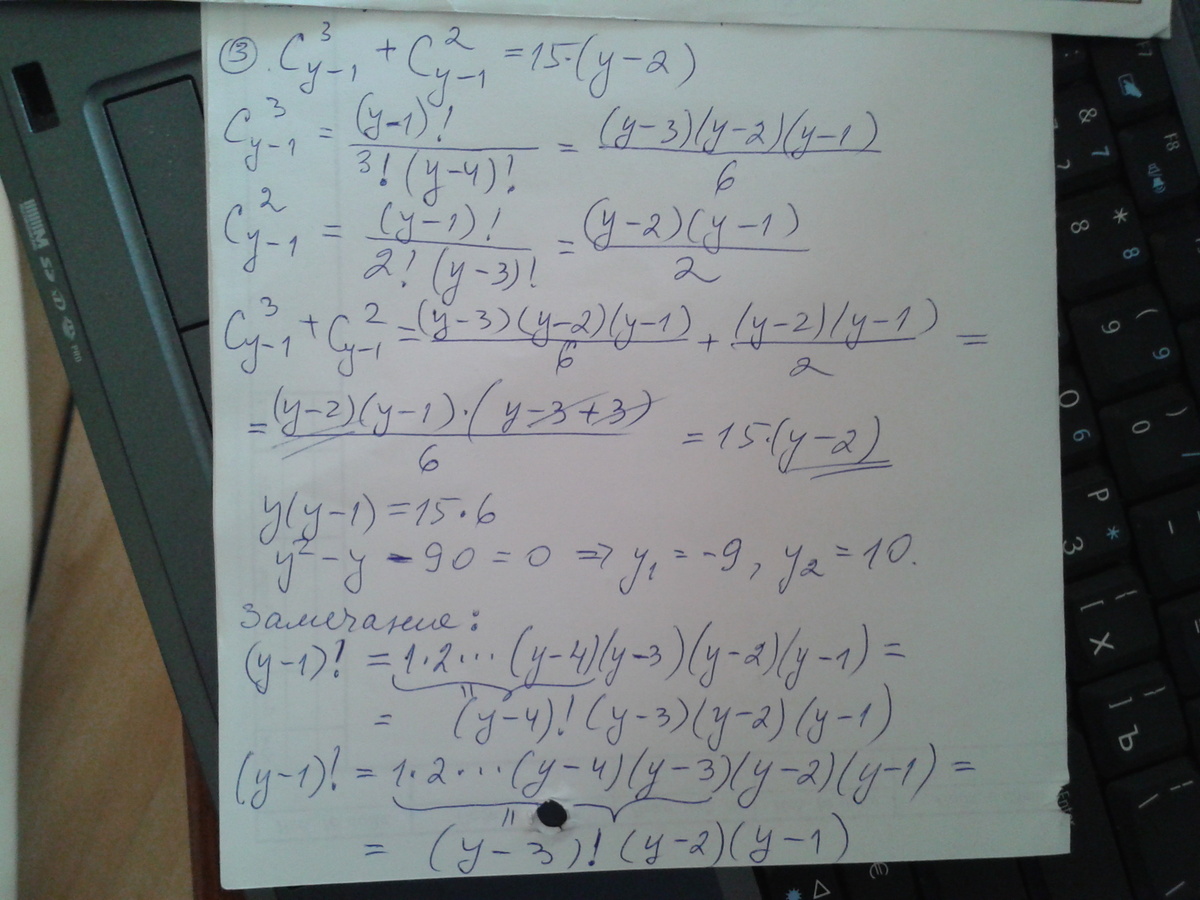 ③. C³_{y-1} + C²_{y-1} = 15·(y-2)
C³_{y-1} = (y-1)! / 3!(y-4)! = (y-3)(y-2)(y-1) / 6
C²_{y-1} = (y-1)! / 2!(y-3)! = (y-2)(y-1) / 2
C³_{y-1} + C²_{y-1} = (y-3)(y-2)(y-1) / 6 + (y-2)(y-1) / 2 =
= (y-2)(y-1)·(y-3+3) / 6 = 15·(y-2)
y(y-1) = 15·6
y² - y - 90 = 0 => y₁ = -9, y₂ = 10.
Замечание:
(y-1)! = 1·2···(y-4)(y-3)(y-2)(y-1) =
= (y-4)!(y-3)(y-2)(y-1)
(y-1)! = 1·2···(y-4)(y-3)(y-2)(y-1) =
= (y-3)!(y-2)(y-1)
F7
F8
& 7 7
* 8 8
( 9 9
) 0
О 6
Р *
З
-
{ [ Х
} ] Ъ
\